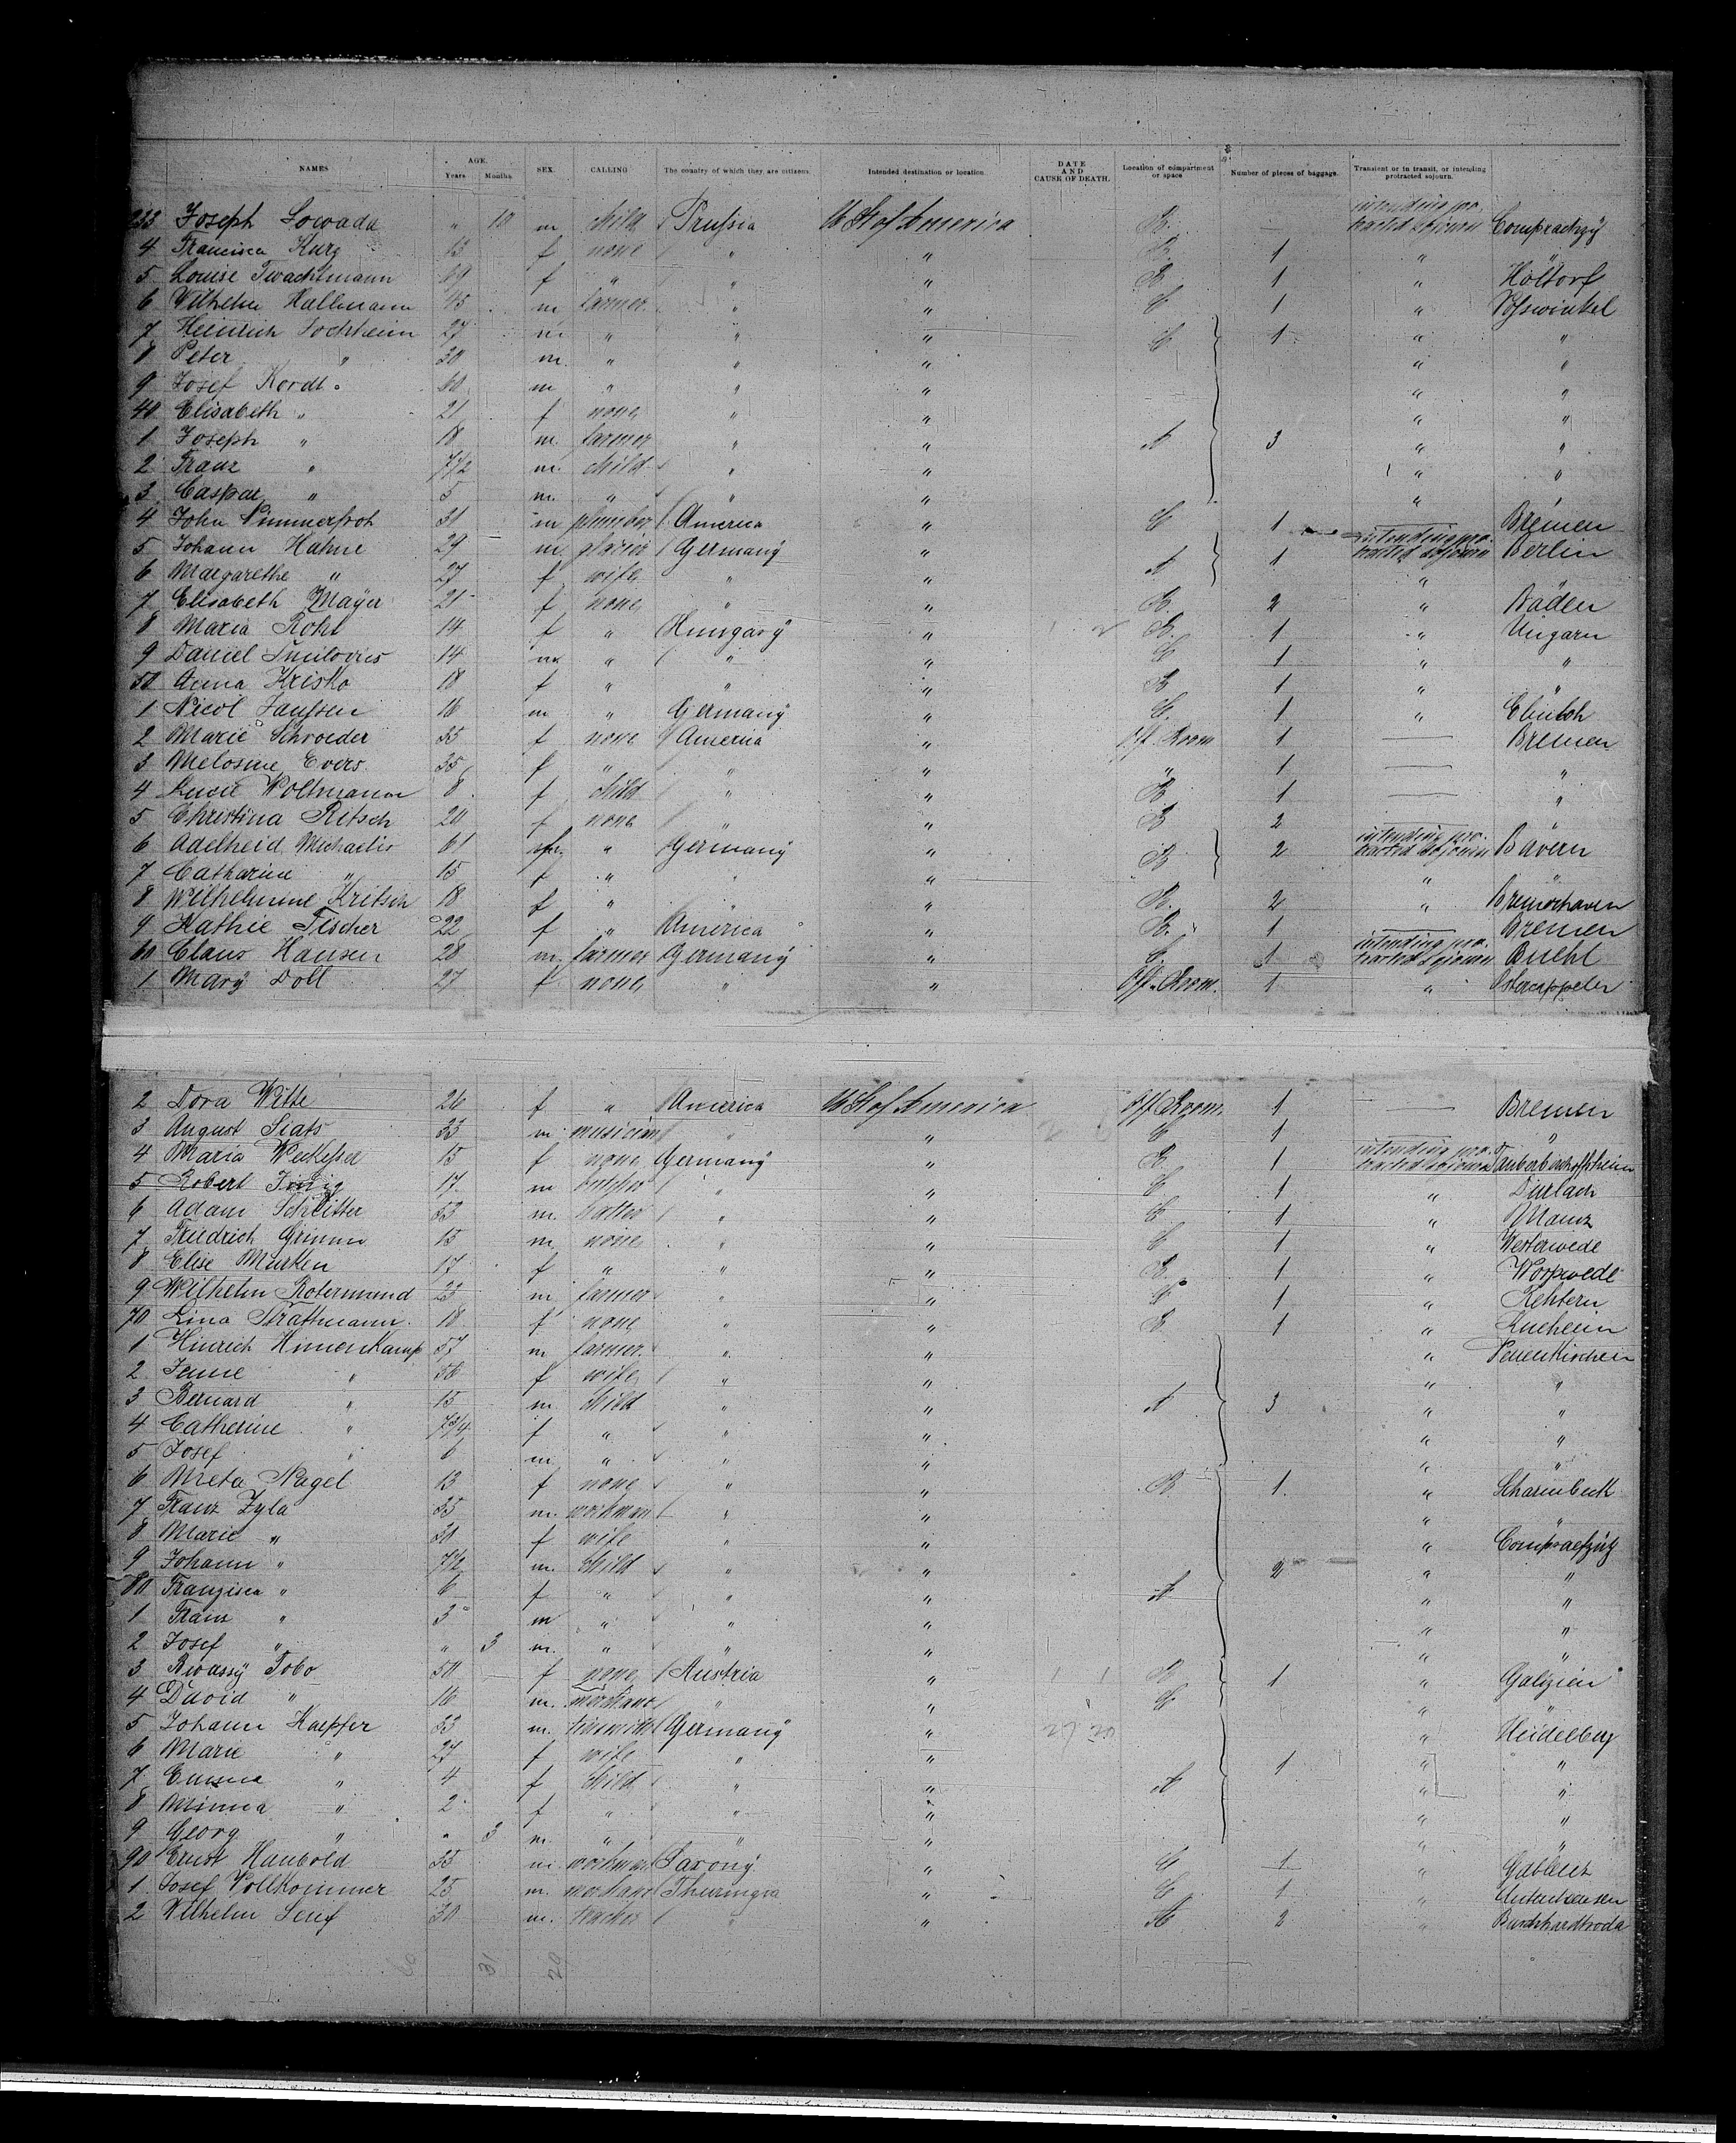 NAMES AGE. Years Months. SEX. CALLING The country of which they are citizens. Intended destination or location. DATE AND CAUSE OF DEATH. Location of compartment or space Number of pieces of baggage. Transient or in transit, or intending protracted sojourn.
233 Joseph Sowada " 10 m child Prussia U St of America B. — intending protracted sojourn Comprachzÿ
4 Francisca Kurz 13 f none " " B. 1 "
5 Louise Twachtmann 19 f " " " B 1 " Holtorf
6 Wilhelm Hallmann 15 m farmer " " C 1 " Voswinkel
7 Heinrich Sochheim 27 m " " " C 1 " "
8 Peter " 20 m. " " " " "
9 Josef Kordt 60 m " " " " "
40 Elisabeth " 21 f none " " " "
1 Joseph " 18 m. farmer " " A 3 " "
2 Franz " 7 1/2 m. child " " " "
3 Caspar " 5 m. " " " " "
4 John Nimmerfroh 31 m plumber America " C 1 — Bremen
5 Johann Hahne 29 m glazier Germanÿ " A 1 intending protracted sojourn Berlin
6 Margarethe " 27 f wife " " "
7 Elisabeth Maÿer 21 f none " " B. 2 " Baden
8 Maria Rohl 14 f " Hungarÿ " B. 1 " Ungarn
9 Daniel 14 m " " " C 1 " "
50 Anna Kristo 18 f " " " B 1 " "
1 Nicol Janssen 16 m " Germanÿ " C. 1 "
2 Marie Schroeder 35 f none America " Off. Room 1 — Bremen
3 Melosine Evers 35 f " " " " 1 — "
4 Lucie Woltmann 8 f child " " B 1 — "
5 Christina Ritsch 20 f none " " B 2 —
6 Adelheid Michaelis 61 f " Germanÿ " B 2 intending protracted sojourn Bavern
7 Catharine " 15 f " " " " "
8 Wilhelmine Kritsch 18 f " " " B. 2 " Bremerhaven
9 Kathie Fischer 22 f " America " B. 1 — Bremen
60 Claus Hansen 28 m. farmer Germanÿ " C. 1 intending protracted sojourn Buehl
1 Marÿ Doll 27 f none " " Off. Room. 1 " Ostercappeln
2 Dora Witte 26 f " America U St of America Off Room. 1 — Bremen
3 August Siats 33 m musician " " C 1 "
4 Maria Weckesser 15 f none Germanÿ " B. 1 intending protracted sojourn Tauberbischofsheim
5 Robert 17 m butcher " " C 1 " Durlach
6 Adam Schlitter 53 m. hatter " " C 1 " Mainz
7 Friedrich Grimm 15 m none " " C 1 " Westerwede
8 Elise Murken 17 f " " " B. 1 " Worpwede
9 Wilhelm Rotermund 23 m farmer " " C 1 " Rehtern
70 Lina Strathmann 18 f none " " B 1 "
1 Hinrich Himenkamp 57 m farmer " " " Neuenkirchen
2 56 f wife " " " "
3 Bernard " 15 m child " " A 3 " "
4 Catherine " 7 3/4 f " " " " "
5 Josef " 6 m " " " " "
6 Meta Nagel 13 f none " " B. 1. " Scharmbeck
7 Franz Zyla 35 m. workman " " " "
8 Marie " 30 f wife " " "
9 Johann " 7 1/2 m. child " " 2 " "
80 Franzisca " 6 f " " " A " "
1 Franz " 3 m " " " " "
2 Josef " " 3 m. " " " " "
3 Tobo 50 f none Austria " B 1 " Galizien
4 David " 16 m. merchant " " C " "
5 Johann Kaepfer 33 m. tinsmith Germanÿ " " Heidelberg
6 Marie " 27 f wife " " 1 " "
7 Emma " 4 f child " " A " "
8 Minna " 2 f " " " " "
9 Georg " " 3 m. " " " " "
90 Ernst Haubold 35 m workman Saxonÿ " C 1 " Gablenz
1 Josef Vollkommer 25 m. merchant Thuringia " C 1 "
2 Wilhelm Senf 30 m. teacher " " A 2 " Burckhardtroda
31 20